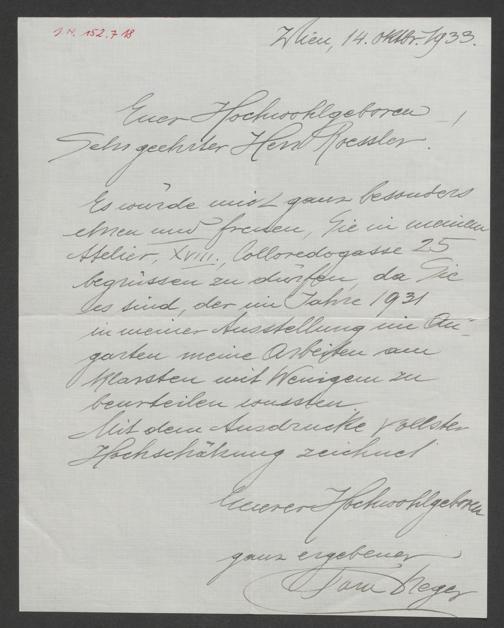 J.N. 152.718
Wien, 14. Oktbr. 1933.
Euer Hochwohlgeboren,
Sehrgeehrter Herr Roessler!
Es würde mich ganz besonders
ehren und freuen, Sie in meinem
Atelier, XVIII., Colloredogasse 25
begrüssen zu dürfen, da Sie
es sind, der im Jahre 1931
in meiner Ausstellung im Au-
garten meine Arbeiten am
klarsten mit Wenigem zu
beurteilen wussten.
Mit dem Ausdrucke vollster
Hochschätzung zeichnet
Euerer Hochwohlgeboren
ganz ergebener